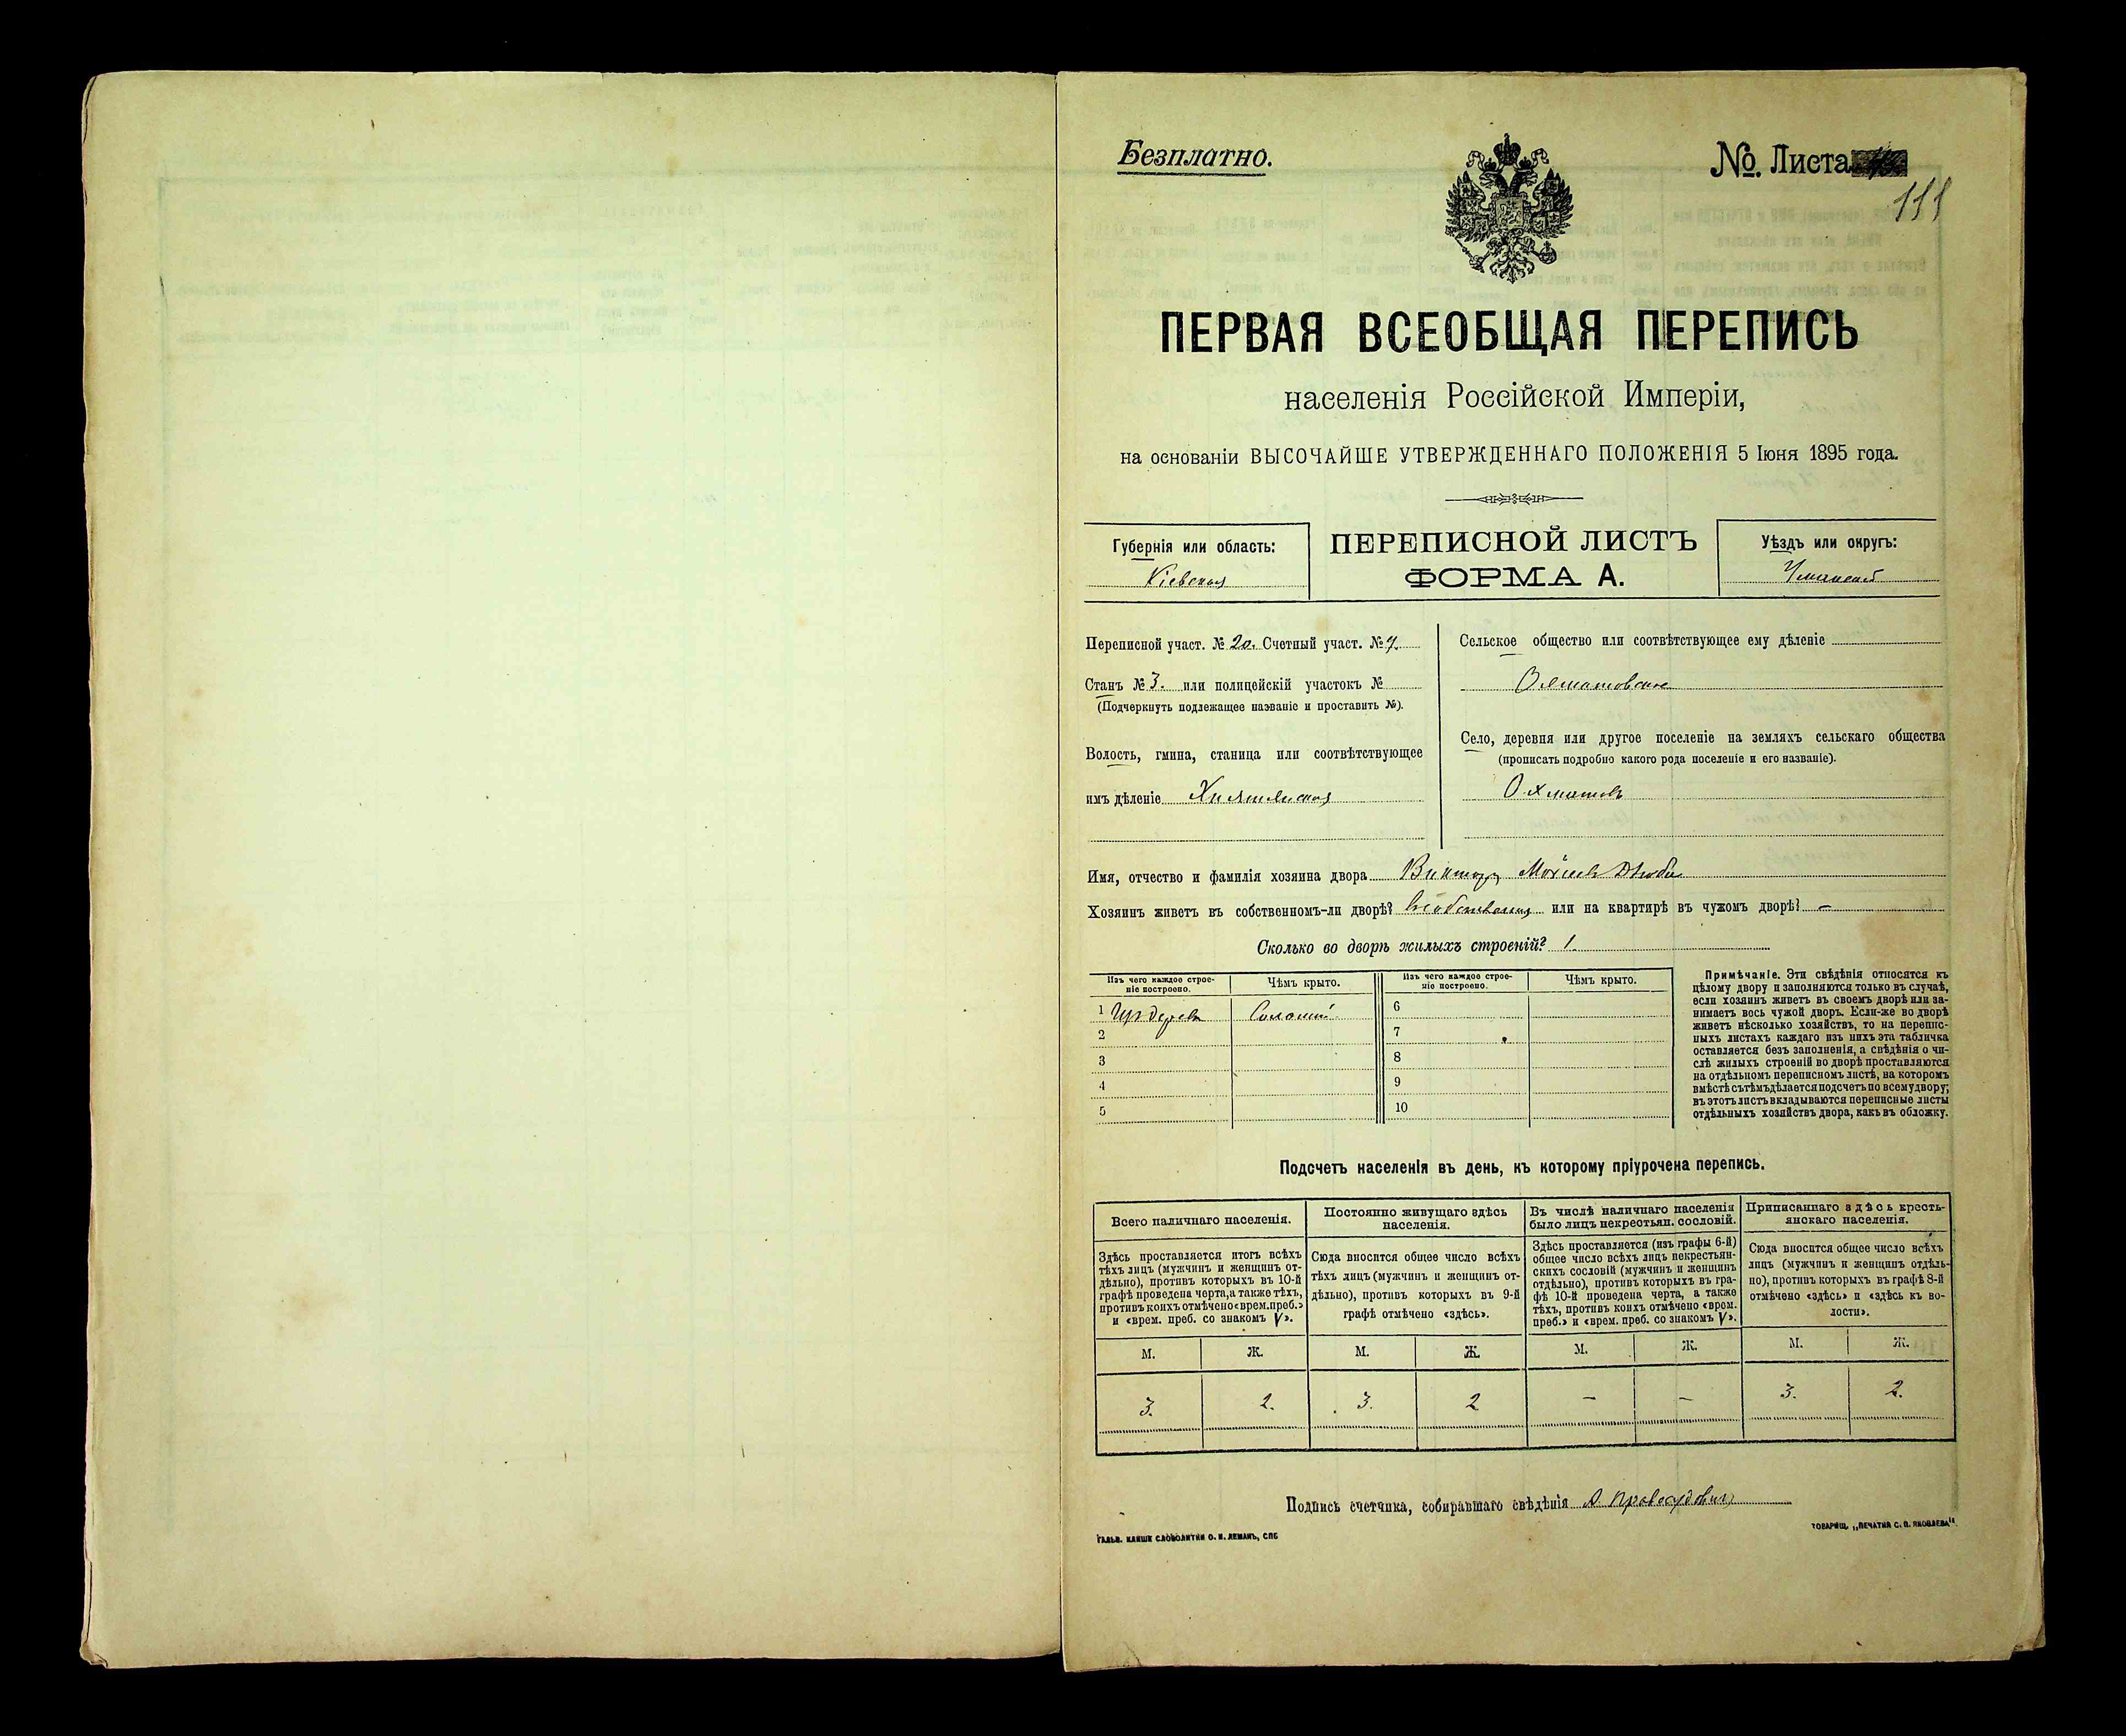 Безплатно.
№. Листа
111
ПЕРВАЯ ВСЕОБЩАЯ ПЕРЕПИСЬ
населенія Россійской Имперіи,
на основаніи ВЫСОЧАЙШЕ УТВЕРЖДЕННАГО ПОЛОЖЕНІЯ 5 Іюня 1895 года.
Губернія или область:
Кіевская
ПЕРЕПИСНОЙ ЛИСТЪ
ФОРМА А.
Уѣздъ или округъ:
Уманскій
Переписной участ. № 20. Счетный участ. № 7.
Станъ № 3. или полицейскій участокъ №
(Подчеркнуть подлежащее названіе и проставить №).
Волость, гмина, станица или соотвѣтствующее
имъ дѣленіе
Сельское общество или соотвѣтствующее ему дѣленіе
Охматовское
Село, деревня или другое поселеніе на земляхъ сельскаго общества
(прописать подробно какого рода поселеніе и его названіе).
Охматовъ
Имя, отчество и фамилія хозяина двора Викторъ Моисеевъ Дзюба
Хозяинъ живетъ въ собственномъ-ли дворѣ? или на квартирѣ въ чужомъ дворѣ? —
Сколько во дворѣ жилыхъ строеній? 1
Изъ чего каждое строе-
ніе построено.
Чѣмъ крыто.
Изъ чего каждое строе-
ніе построено.
Чѣмъ крыто.
1 Изъ дерева Соломой 6
2 7
3 8
4 9
5 10
Примѣчаніе. Эти свѣдѣнія относятся къ
цѣлому двору и заполняются только въ случаѣ,
если хозяинъ живетъ въ своемъ дворѣ или за-
нимаетъ весь чужой дворъ. Если-же во дворѣ
живетъ нѣсколько хозяйствъ, то на перепис-
ныхъ листахъ каждаго изъ нихъ эта табличка
оставляется безъ заполненія, а свѣдѣнія о чи-
слѣ жилыхъ строеній во дворѣ проставляются
на отдѣльномъ переписномъ листѣ, на которомъ
вмѣстѣ съ тѣмъ дѣлается подсчетъ по всему двору;
въ этотъ листъ вкладываются переписные листы
отдѣльныхъ хозяйствъ двора, какъ въ обложку.
Подсчетъ населенія въ день, къ которому пріурочена перепись.
Всего наличнаго населенія.
Здѣсь проставляется итогъ всѣхъ
тѣхъ лицъ (мужчинъ и женщинъ от-
дѣльно), противъ которыхъ въ 10-й
графѣ проведена черта, а также тѣхъ,
противъ коихъ отмѣчено «врем. преб.»
и «врем. преб. со знакомъ V».
Постоянно живущаго здѣсь
населенія.
Сюда вносится общее число всѣхъ
тѣхъ лицъ (мужчинъ и женщинъ от-
дѣльно), противъ которыхъ въ 9-й
графѣ отмѣчено «здѣсь».
Въ числѣ наличнаго населенія
было лицъ некрестьян. сословій.
Здѣсь проставляется (изъ графы 6-й)
общее число всѣхъ лицъ некрестьян-
скихъ сословій (мужчинъ и женщинъ
отдѣльно), противъ которыхъ въ гра-
фѣ 10-й проведена черта, а также
тѣхъ, противъ коихъ отмѣчено «врем.
преб.» и «врем. преб. со знакомъ V».
Приписаннаго здѣсь кресть-
янскаго населенія.
Сюда вносится общее число всѣхъ
лицъ (мужчинъ и женщинъ отдѣль-
но), противъ которыхъ въ графѣ 8-й
отмѣчено «здѣсь» и «здѣсь къ во-
лости».
М. Ж. М. Ж. М. Ж. М. Ж.
3. 2. 3. 2 — — 3. 2.
Подпись счетчика, собиравшаго свѣдѣнія
ГАЛЬВ. КЛИШЕ СЛОВОЛИТНИ О. И. ЛЕМАНЪ, СПБ
ТОВАРИЩ. „ПЕЧАТНЯ С. П. ЯКОВЛЕВА".